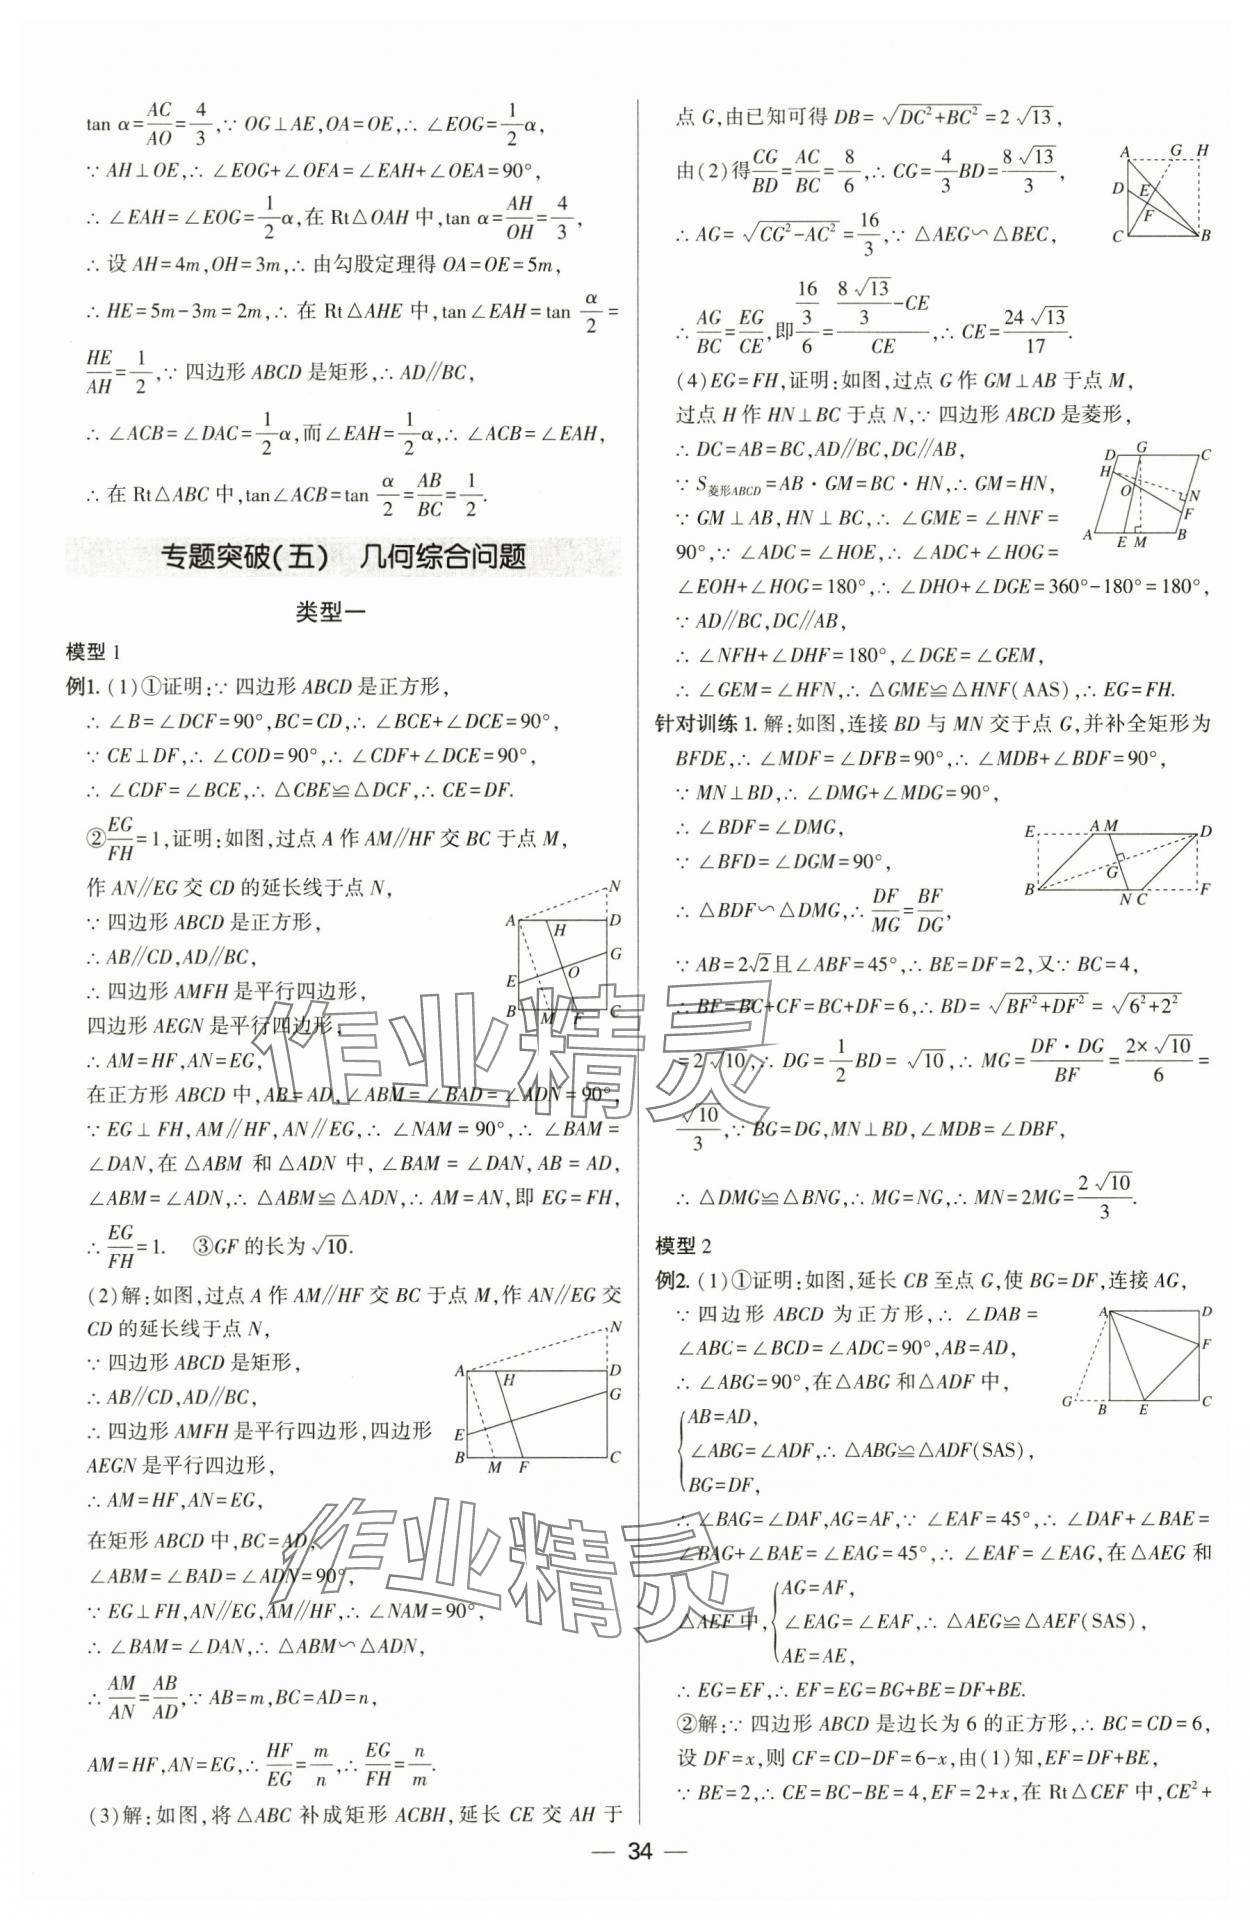 tan α=AC/AO=4/3,∵ OG⊥AE,OA=OE,∴ ∠EOG=1/2α,
∵ AH⊥OE,∴ ∠EOG+∠OFA=∠EAH+∠OEA=90°,
∴ ∠EAH=∠EOG=1/2α,在 Rt△OAH 中,tan α=AH/OH=4/3,
∴ 设 AH=4m,OH=3m,∴ 由勾股定理得 OA=OE=5m,
∴ HE=5m-3m=2m,∴ 在 Rt△AHE 中,tan∠EAH=tan α/2=
HE/AH=1/2,∵ 四边形 ABCD 是矩形,∴ AD∥BC,
∴ ∠ACB=∠DAC=1/2α,而∠EAH=1/2α,∴ ∠ACB=∠EAH,
∴ 在 Rt△ABC 中,tan∠ACB=tan α/2=AB/BC=1/2.
专题突破(五) 几何综合问题
类型一
模型 1
例1. (1)①证明:∵ 四边形 ABCD 是正方形,
∴ ∠B=∠DCF=90°,BC=CD,∴ ∠BCE+∠DCE=90°,
∵ CE⊥DF,∴ ∠COD=90°,∴ ∠CDF+∠DCE=90°,
∴ ∠CDF=∠BCE,∴ △CBE≌△DCF,∴ CE=DF.
②EG/FH=1,证明:如图,过点 A 作 AM∥HF 交 BC 于点 M,
作 AN∥EG 交 CD 的延长线于点 N,
∵ 四边形 ABCD 是正方形,
∴ AB∥CD,AD∥BC,
∴ 四边形 AMFH 是平行四边形,
四边形 AEGN 是平行四边形,
∴ AM=HF,AN=EG,
在正方形 ABCD 中,AB=AD,∠ABM=∠BAD=∠ADN=90°,
∵ EG⊥FH,AM∥HF,AN∥EG,∴ ∠NAM=90°,∴ ∠BAM=
∠DAN,在△ABM 和△ADN 中,∠BAM=∠DAN,AB=AD,
∠ABM=∠ADN,∴ △ABM≌△ADN,∴ AM=AN,即 EG=FH,
∴ EG/FH=1. ③GF 的长为√10.
(2)解:如图,过点 A 作 AM∥HF 交 BC 于点 M,作 AN∥EG 交
CD 的延长线于点 N,
∵ 四边形 ABCD 是矩形,
∴ AB∥CD,AD∥BC,
∴ 四边形 AMFH 是平行四边形,四边形
AEGN 是平行四边形,
∴ AM=HF,AN=EG,
在矩形 ABCD 中,BC=AD,
∠ABM=∠BAD=∠ADN=90°,
∵ EG⊥FH,AN∥EG,AM∥HF,∴ ∠NAM=90°,
∴ ∠BAM=∠DAN,∴ △ABM∽△ADN,
∴ AM/AN=AB/AD,∵ AB=m,BC=AD=n,
AM=HF,AN=EG,∴ HF/EG=m/n,∴ EG/FH=n/m.
(3)解:如图,将△ABC 补成矩形 ACBH,延长 CE 交 AH 于
点 G,由已知可得 DB=√(DC²+BC²)=2√13,
由(2)得CG/BD=AC/BC=8/6,∴ CG=4/3BD=8√13/3,
∴ AG=√(CG²-AC²)=16/3,∵ △AEG∽△BEC,
∴ AG/BC=EG/CE,即(16/3)/6=(8√13/3-CE)/CE,∴ CE=24√13/17.
(4)EG=FH,证明:如图,过点 G 作 GM⊥AB 于点 M,
过点 H 作 HN⊥BC 于点 N,∵ 四边形 ABCD 是菱形,
∴ DC=AB=BC,AD∥BC,DC∥AB,
∵ S菱形ABCD=AB·GM=BC·HN,∴ GM=HN,
∵ GM⊥AB,HN⊥BC,∴ ∠GME=∠HNF=
90°,∵ ∠ADC=∠HOE,∴ ∠ADC+∠HOG=
∠EOH+∠HOG=180°,∴ ∠DHO+∠DGE=360°-180°=180°,
∵ AD∥BC,DC∥AB,
∴ ∠NFH+∠DHF=180°,∠DGE=∠GEM,
∴ ∠GEM=∠HFN,∴ △GME≌△HNF(AAS),∴ EG=FH.
针对训练 1. 解:如图,连接 BD 与 MN 交于点 G,并补全矩形为
BFDE,∴ ∠MDF=∠DFB=90°,∴ ∠MDB+∠BDF=90°,
∵ MN⊥BD,∴ ∠DMG+∠MDG=90°,
∴ ∠BDF=∠DMG,
∵ ∠BFD=∠DGM=90°,
∴ △BDF∽△DMG,∴ DF/MG=BF/DG,
∵ AB=2√2且∠ABF=45°,∴ BE=DF=2,又∵ BC=4,
∴ BF=BC+CF=BC+DF=6,∴ BD=√(BF²+DF²)=√(6²+2²)
=2√10,∴ DG=1/2BD=√10,∴ MG=DF·DG/BF=2×√10/6=
√10/3,∵ BG=DG,MN⊥BD,∠MDB=∠DBF,
∴ △DMG≌△BNG,∴ MG=NG,∴ MN=2MG=2√10/3.
模型 2
例2. (1)①证明:如图,延长 CB 至点 G,使 BG=DF,连接 AG,
∵ 四边形 ABCD 为正方形,∴ ∠DAB=
∠ABC=∠BCD=∠ADC=90°,AB=AD,
∴ ∠ABG=90°,在△ABG 和△ADF 中,
AB=AD,
∠ABG=∠ADF,∴ △ABG≌△ADF(SAS),
BG=DF,
∴ ∠BAG=∠DAF,AG=AF,∵ ∠EAF=45°,∴ ∠DAF+∠BAE=
∠BAG+∠BAE=∠EAG=45°,∴ ∠EAF=∠EAG,在△AEG 和
AG=AF,
△AEF 中,∠EAG=∠EAF,∴ △AEG≌△AEF(SAS),
AE=AE,
∴ EG=EF,∴ EF=EG=BG+BE=DF+BE.
②解:∵ 四边形 ABCD 是边长为 6 的正方形,∴ BC=CD=6,
设 DF=x,则 CF=CD-DF=6-x,由(1)知,EF=DF+BE,
∵ BE=2,∴ CE=BC-BE=4,EF=2+x,在 Rt△CEF 中,CE²+
— 34 —
作业精灵
作业精灵